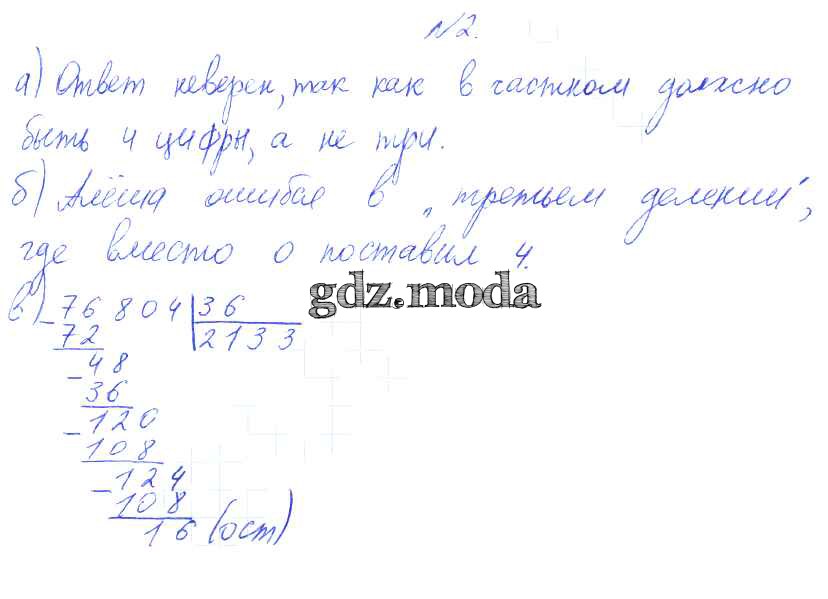 №2.
а) Ответ неверен, так как в частном должно
быть 4 цифры, а не три.
б) Алёша ошибся в „третьем делении",
где вместо 0 поставил 4.
gdz.moda
в) 76804 | 36
72 2133
48
36
120
108
124
108
16 (ост)